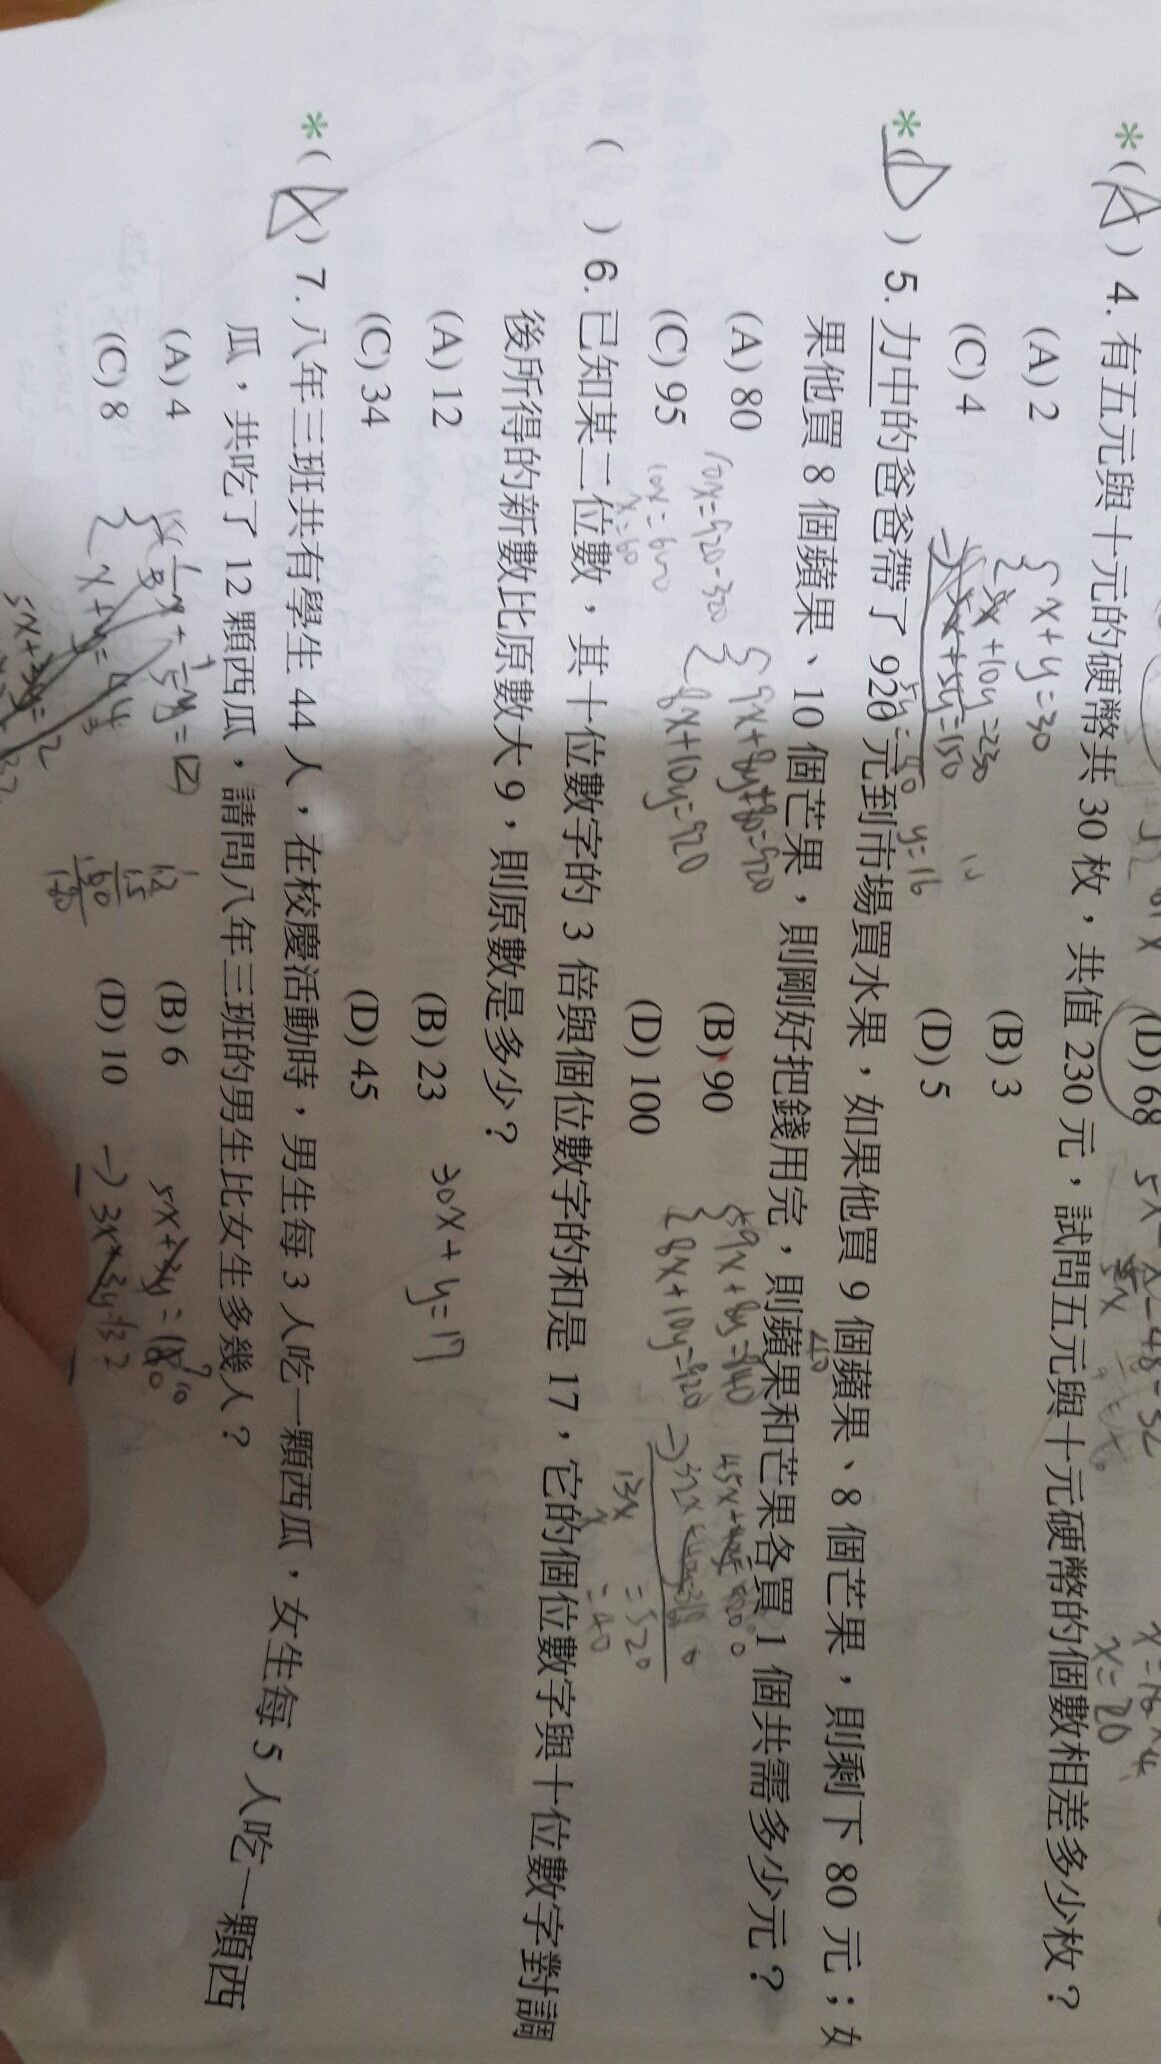 (D) 68
*(A) 4. 有五元與十元的硬幣共 30 枚，共值 230 元，試問五元與十元硬幣的個數相差多少枚？
(A) 2
(B) 3
(C) 4
(D) 5
x+y=30
5x+10y=230
y=16
x=20
*(D) 5. 力中的爸爸帶了 920 元到市場買水果，如果他買 9 個蘋果、8 個芒果，則剩下 80 元；如
果他買 8 個蘋果、10 個芒果，則剛好把錢用完，則蘋果和芒果各買 1 個共需多少元？
(A) 80
(B) 90
(C) 95
(D) 100
9x+8y+80=920
8x+10y=920
10x=920-320
10x=600
x=60
9x+8y=840
8x+10y=920
13x=520
x=40
( ) 6. 已知某二位數，其十位數字的 3 倍與個位數字的和是 17，它的個位數字與十位數字對調
後所得的新數比原數大 9，則原數是多少？
(A) 12
(B) 23
(C) 34
(D) 45
30x+y=17
*(A) 7. 八年三班共有學生 44 人，在校慶活動時，男生每 3 人吃一顆西瓜，女生每 5 人吃一顆西
瓜，共吃了 12 顆西瓜，請問八年三班的男生比女生多幾人？
(A) 4
(B) 6
(C) 8
(D) 10
x+y=44
5x+3y=180